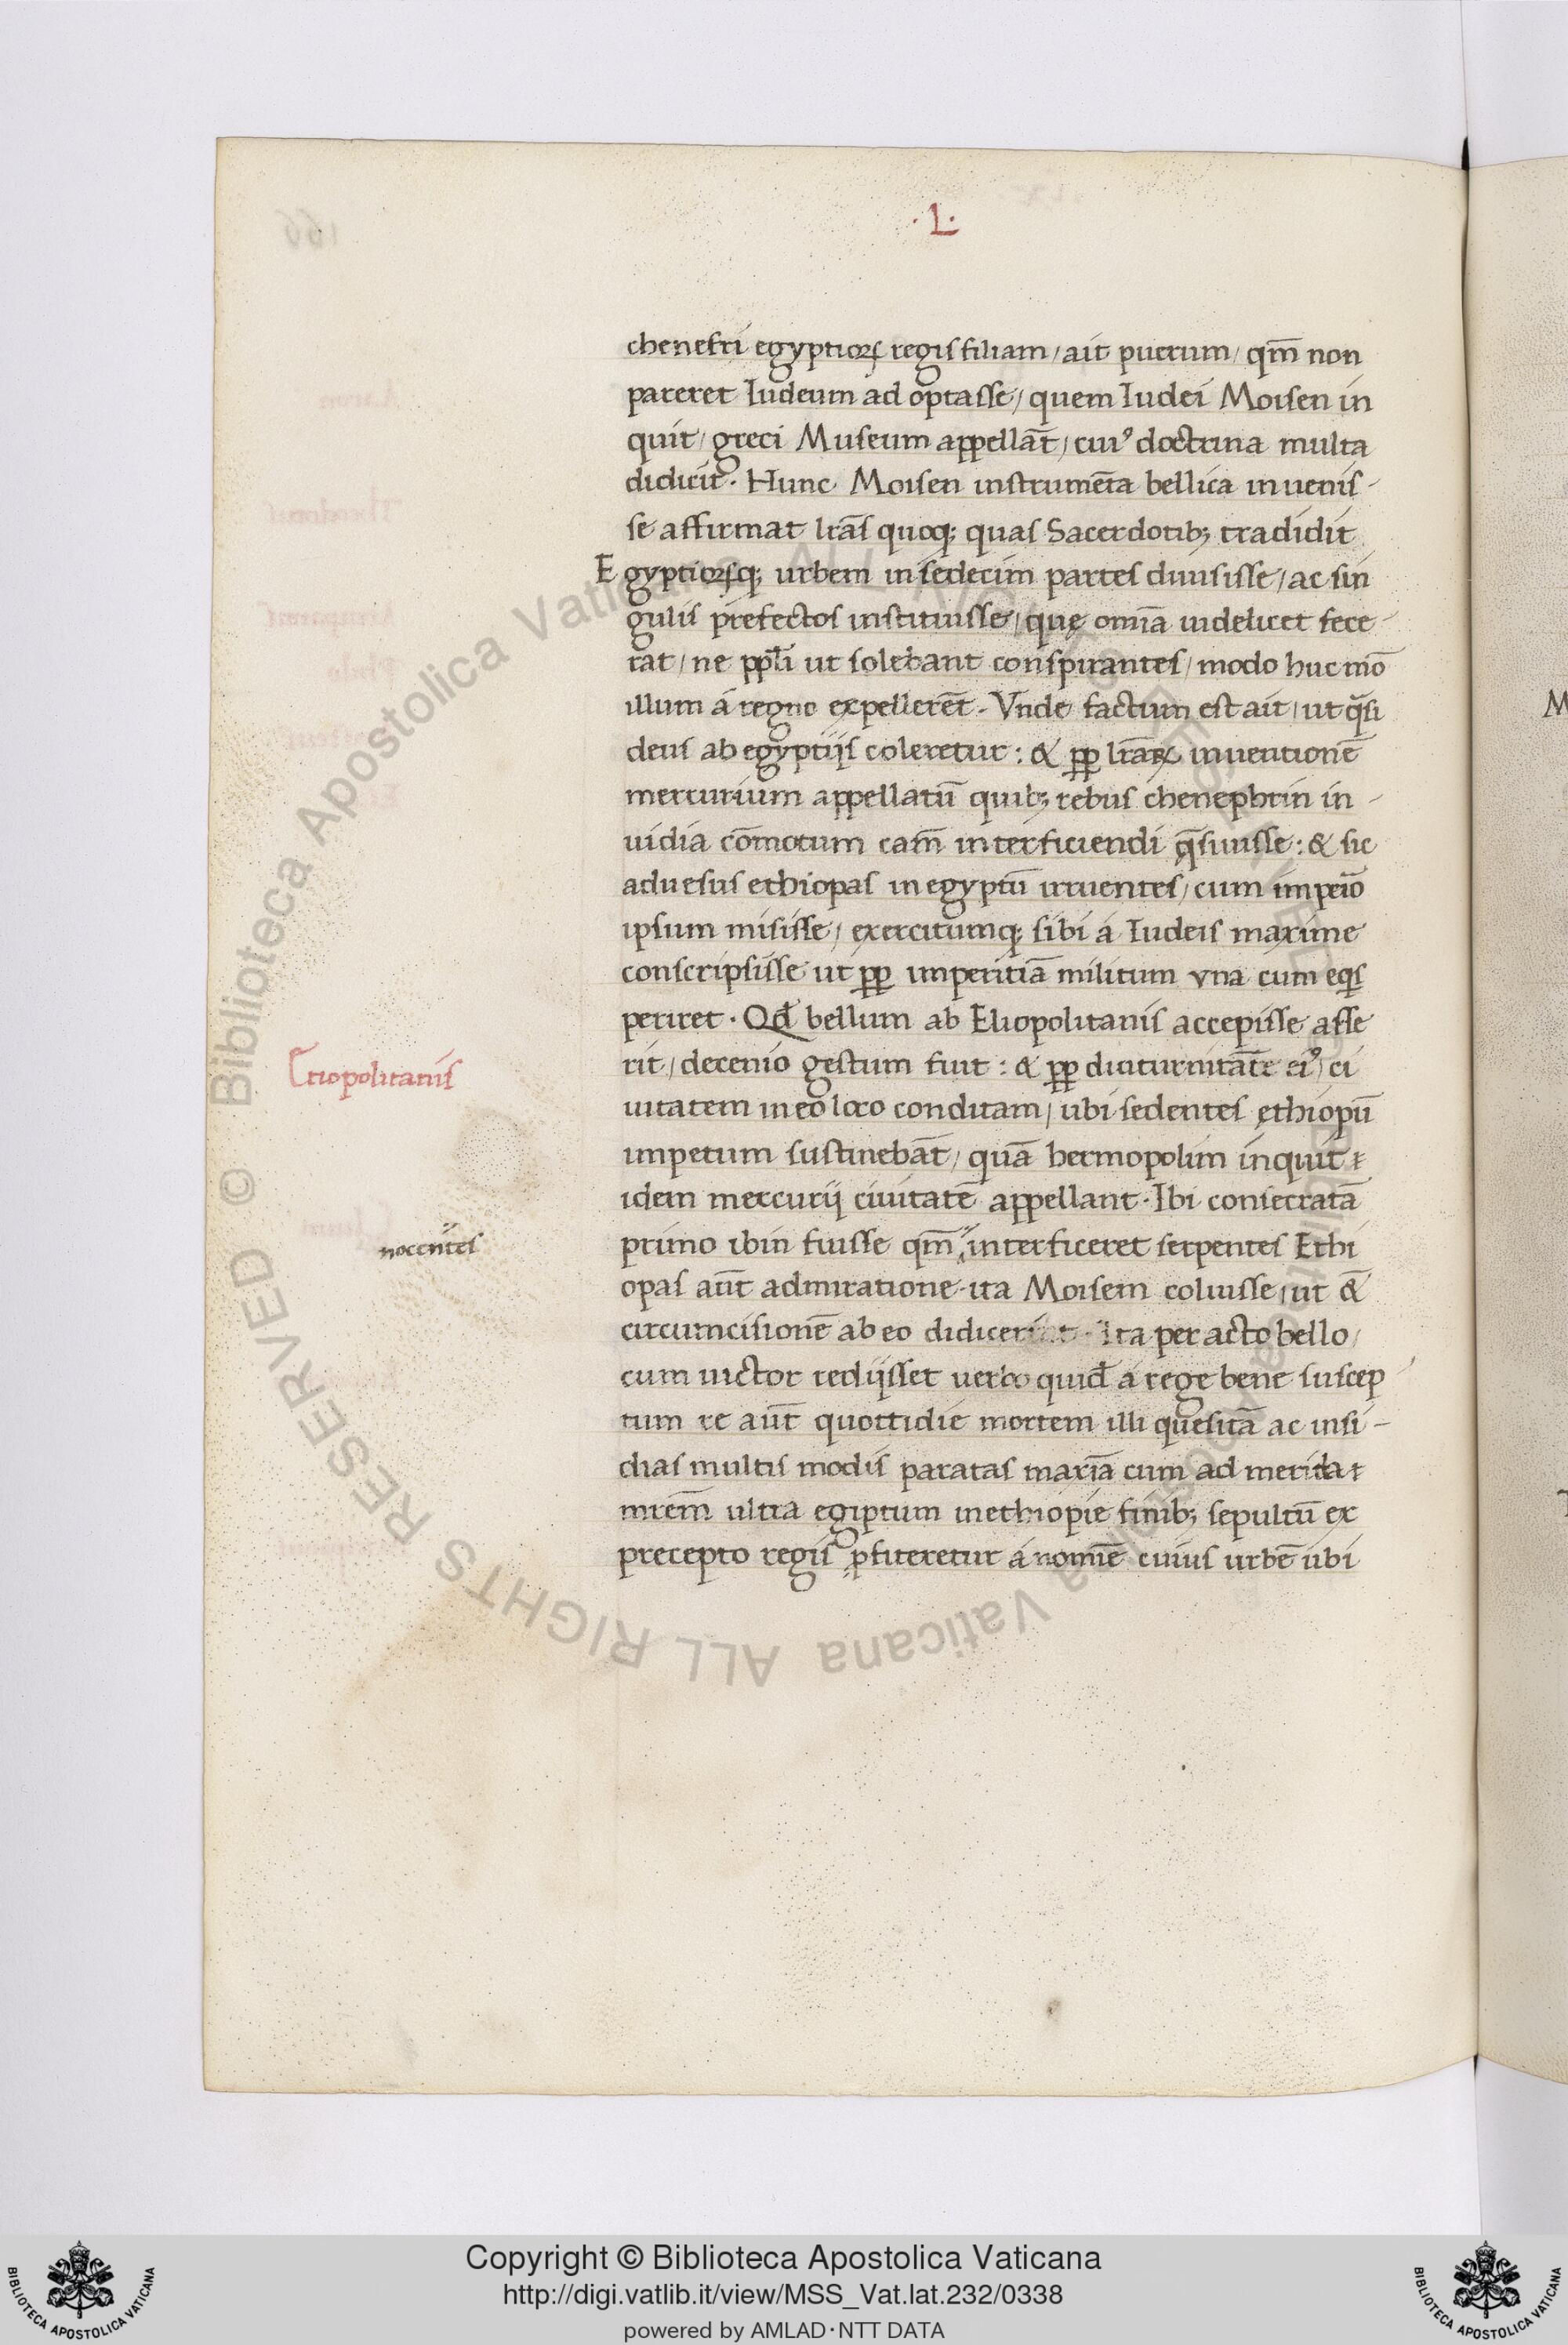 ·L·
chenefri egyptioꝝ regis filiam / ait puerum / qm̄ non
pareret Iudeum ad optasse / quem Iudei Moisen in
quit / greci Museum appellāt / cuiꝰ doctrina multa
didicit · Hunc Moisen instrumēta bellica inuenis-
se affirmat lr̄as quoqꝫ quas Sacerdotibꝫ tradidit
Egyptioꝝqꝫ urbem in sedecim partes diuisisse / ac sin
gulis prefectos instituisse / quę om̄ia uidelicet fece-
rat / ne pp̄li ut solebant conspirantes / modo huc mō
illum á regno expellerēt · Vnde factum est ait / ut q̄si
deus ab egyptijs coleretur : & pp̄ lr̄aꝝ inuentionē
mercurium appellatū quibꝫ rebus chenephrin in-
uidia cōmotum cam̄ interficiendi q̄siuisse : & sic
aduesus ethiopas in egyptū irruentes / cum imperio
ipsum misisse / exercitumqꝫ sibi á Iudeis maxime
conscripsisse ut pp̄ imperitiā militum vna cum eqs
periret · Qd̄ bellum ab Eliopolitanis accepisse asse
rit / decenio gestum fuit : & pp̄ diuturnitatē eiꝰ / ci
uitatem in eo loco conditam / ubi sedentes ethiopū
impetum sustinebāt / quā hermopolim inquit
idem mercurij ciuitatē appellant · Ibi consecratā
primo ibin fuisse qm̄ interficeret serpentes Ethi
opas aūt admiratione ita Moisem coluisse / ut &
circumcisionē ab eo didicerint · Ita per acto bello /
cum uictor redijsset uerbo quid̄ á rege bene suscep
tum re aūt quottidie mortem illi quesitā ac insi-
dias multis modis paratas mariā cum ad merida
mrem̄ ultra egiptum in ethiopie finibꝫ sepultū ex
precepto regis ꝓfiteretur á nomīe cuius urbē ubi
Etiopolitanis
nocentes
Biblioteca Apostolica Vaticana ALL RIGHTS RESERVED ©
Copyright © Biblioteca Apostolica Vaticana
http://digi.vatlib.it/view/MSS_Vat.lat.232/0338
powered by AMLAD·NTT DATA
BIBLIOTECA APOSTOLICA VATICANA
BIBLIOTECA APOSTOLICA VATICANA